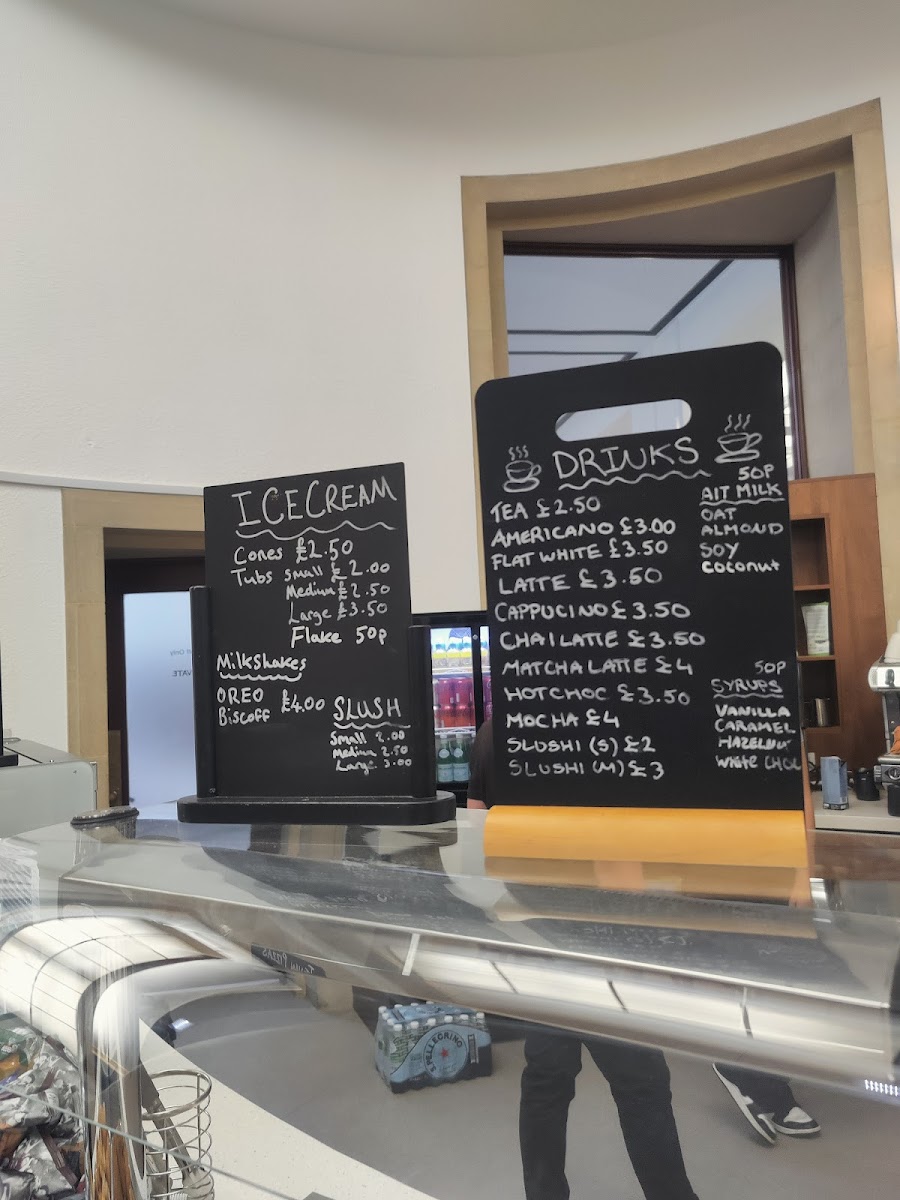 ICECREAM
Cones £2.50
Tubs Small £2.00
Medium £2.50
Large £3.50
Flake 50p
Milkshakes
OREO £4.00
Biscoff
SLUSH
Small 2.00
Medium 2.50
Large 3.00
DRINKS
TEA £2.50
AMERICANO £3.00
FLAT WHITE £3.50
LATTE £3.50
CAPPUCINO £3.50
CHAI LATTE £3.50
MATCHA LATTE £4
HOT CHOC £3.50
MOCHA £4
SLUSHI (S) £2
SLUSHI (M) £3
50P
AIT MILK
OAT
ALMOND
SOY
coconut
50P
SYRUPS
VANILLA
CARAMEL
HAZELNUT
WHITE CHOC
S.PELLEGRINO